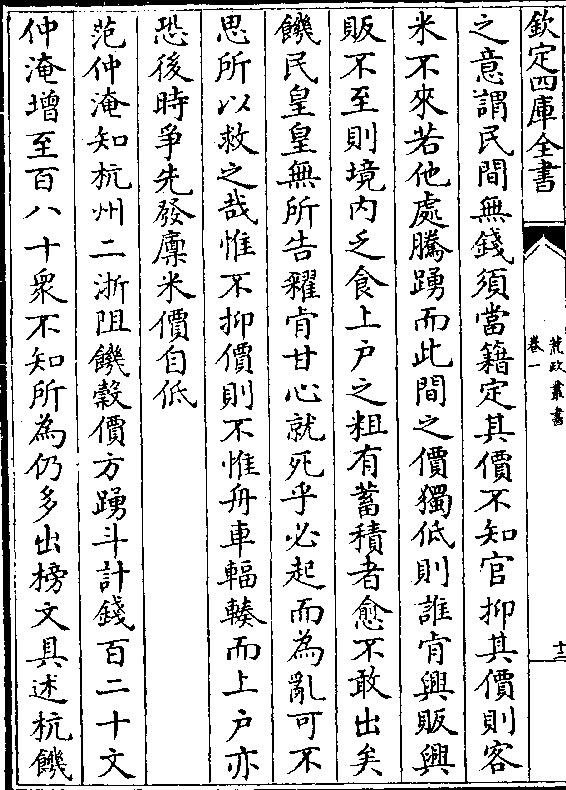 欽定四庫全書
荒政叢書
卷一
十三
之意謂民間無錢須當籍定其價不知官抑其價則客
米不來若他處騰踴而此間之價獨低則誰肯興販興
販不至則境内乏食上户之粗有蓄積者愈不敢出矣
饑民皇皇無所告糴肯甘心就死乎必起而為亂可不
思所以救之哉惟不抑價則不惟舟車輻輳而上户亦
恐後時爭先發廪米價自低
范仲淹知杭州二浙阻饑穀價方踴斗計錢百二十文
仲淹增至百八十衆不知所為仍多出榜文具述杭饑